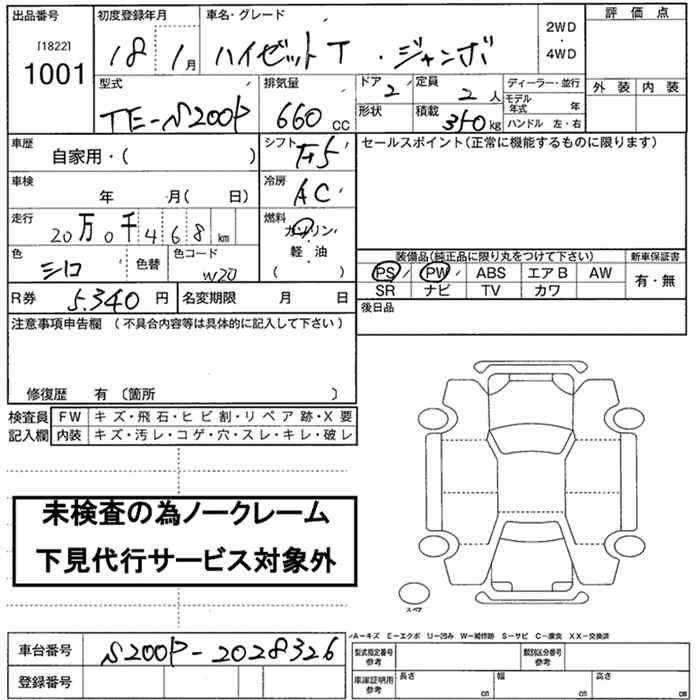 出品番号 初度登録年月 車名・グレード 評価点
[1822] 1001 18 1月 ハイゼットT ・ジャンボ 2WD・4WD
外装 内装
型式 排気量 ドア 2 定員 2人 ディーラー・並行
TE-S200P 660 CC 形状 積載 350kg モデル年式 年
ハンドル 左・右
車歴 自家用・( ) シフト F5 セールスポイント(正常に機能するものに限ります)
車検 年 月( 日) 冷房 AC
走行 20万0千468km 燃料 ガソリン・軽油 ( )
色 シロ 色替 色コード W20
装備品(純正品に限り丸をつけて下さい) 新車保証書
PS PW ABS エアB AW 有・無
SR ナビ TV カワ
R券 5.340円 名変期限 月 日 後日品
注意事項申告欄 (不具合内容等は具体的に記入して下さい)
修復歴 有 (箇所 )
検査員 FW キズ・飛石・ヒビ割・リペア跡・X要
記入欄 内装 キズ・汚レ・コゲ・穴・スレ・キレ・破レ
未検査の為ノークレーム
下見代行サービス対象外
スペア
A-キズ E-エクボ U-凹み W-補修跡 S-サビ C-腐食 XX-交換済
車台番号 S200P-2028326 型式指定番号 参考 類別区分番号 参考
登録番号 車庫証明用 参考 長さ cm 幅 cm 高さ cm